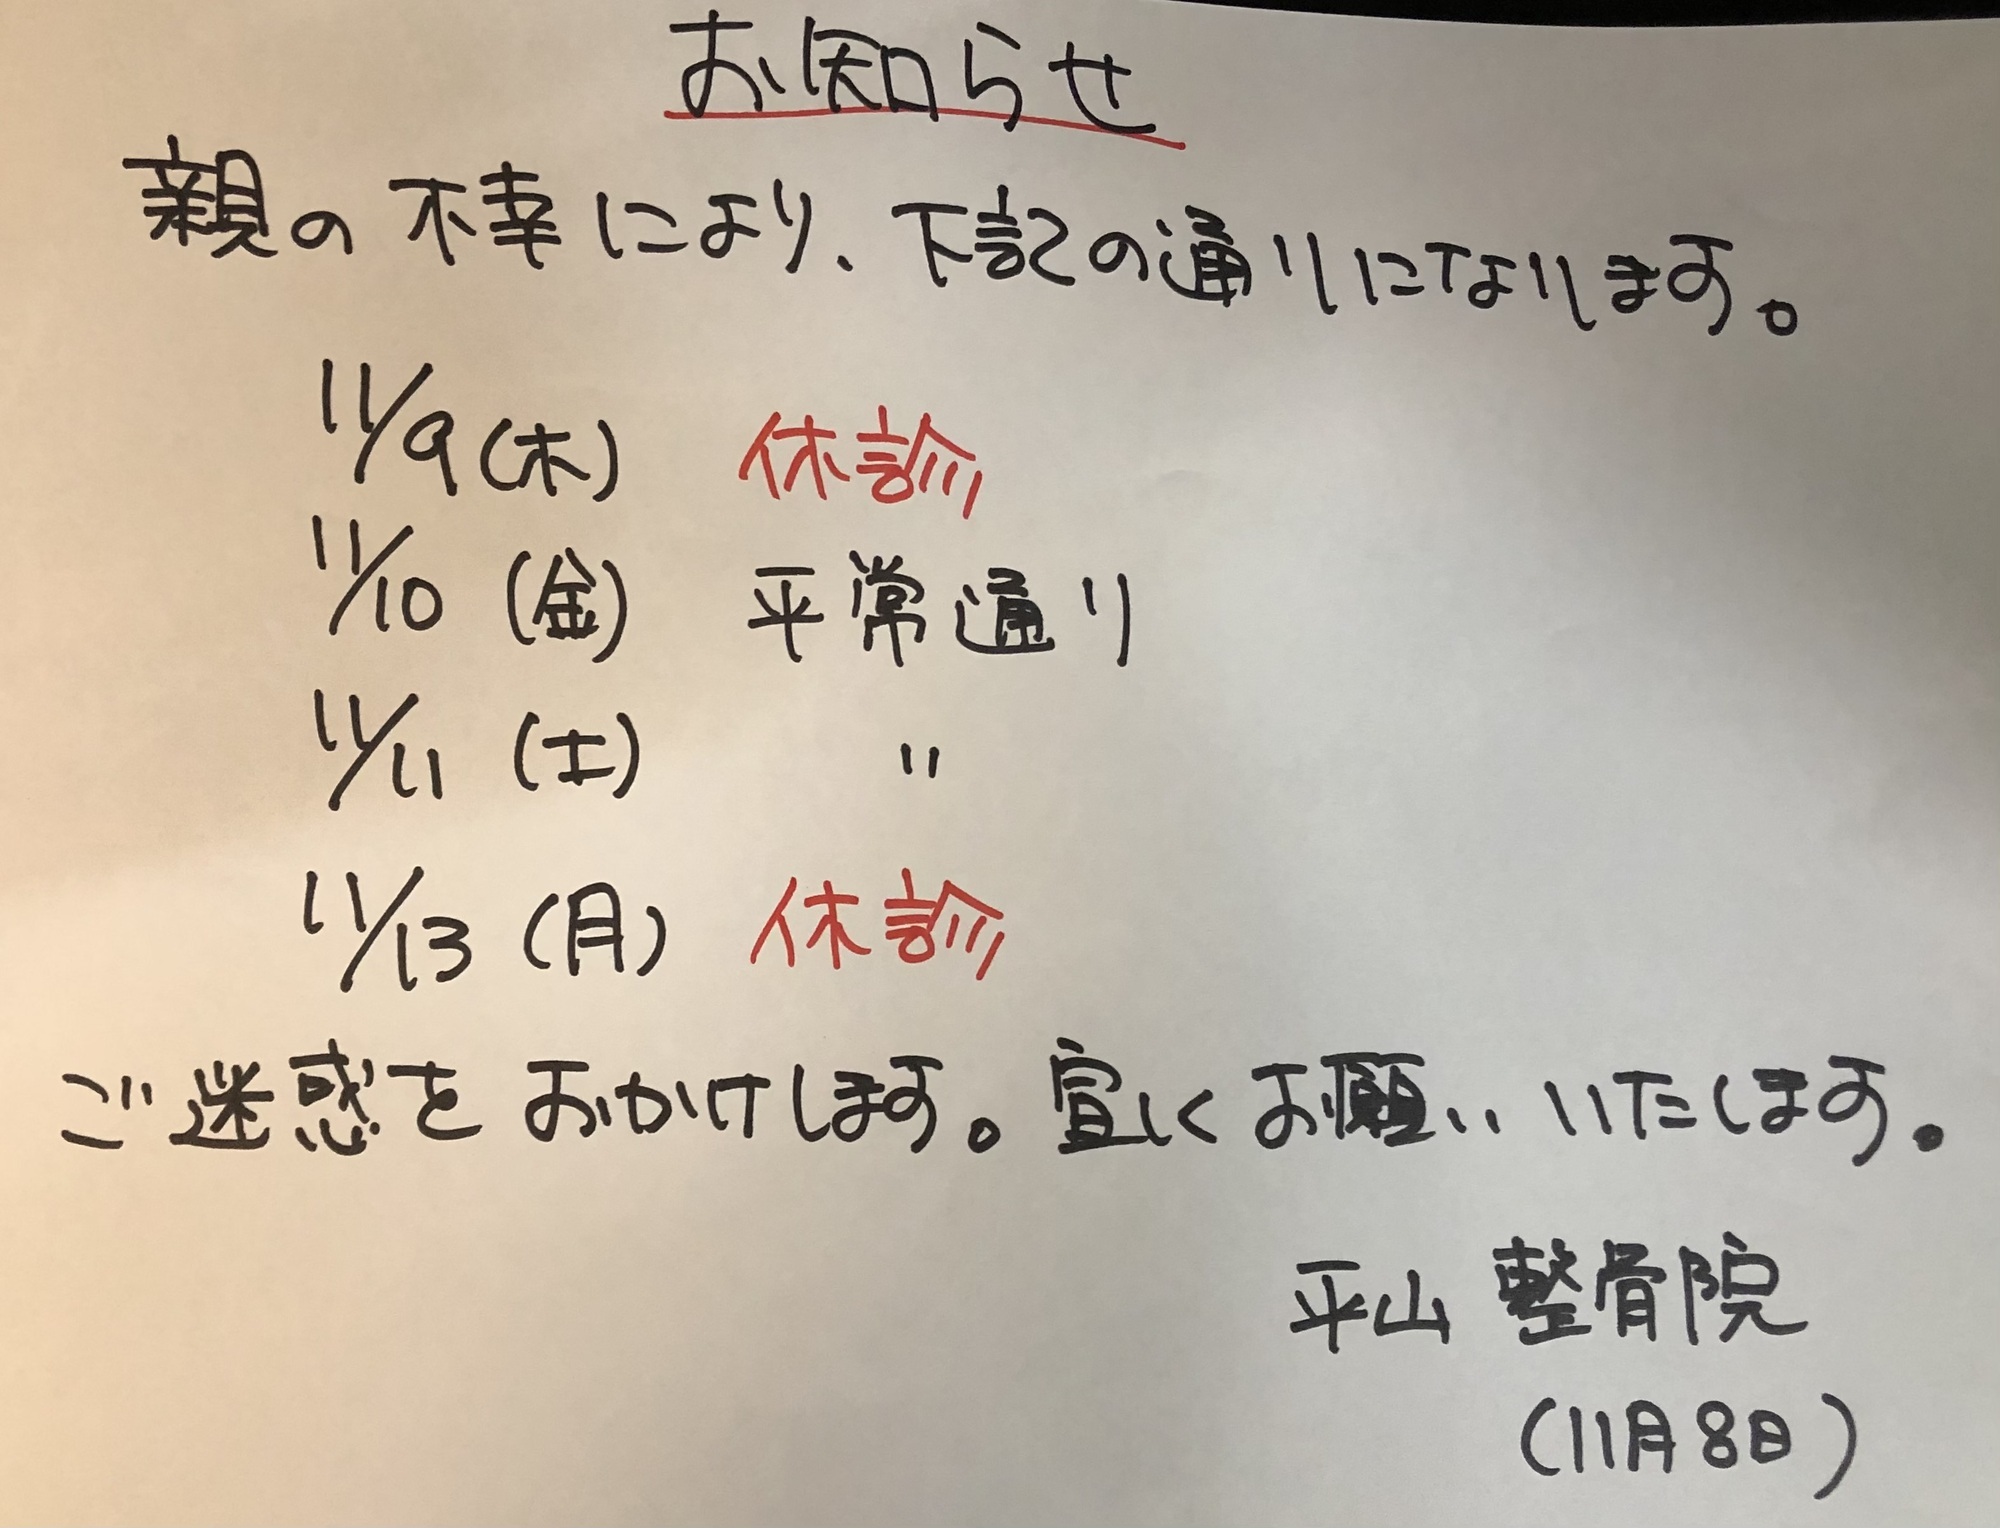 お知らせ
親の不幸により、下記の通りになります。
11/9(木) 休診
11/10(金) 平常通り
11/11(土) 〃
11/13(月) 休診
ご迷惑をおかけします。宜しくお願いいたします。
平山整骨院
(11月8日)